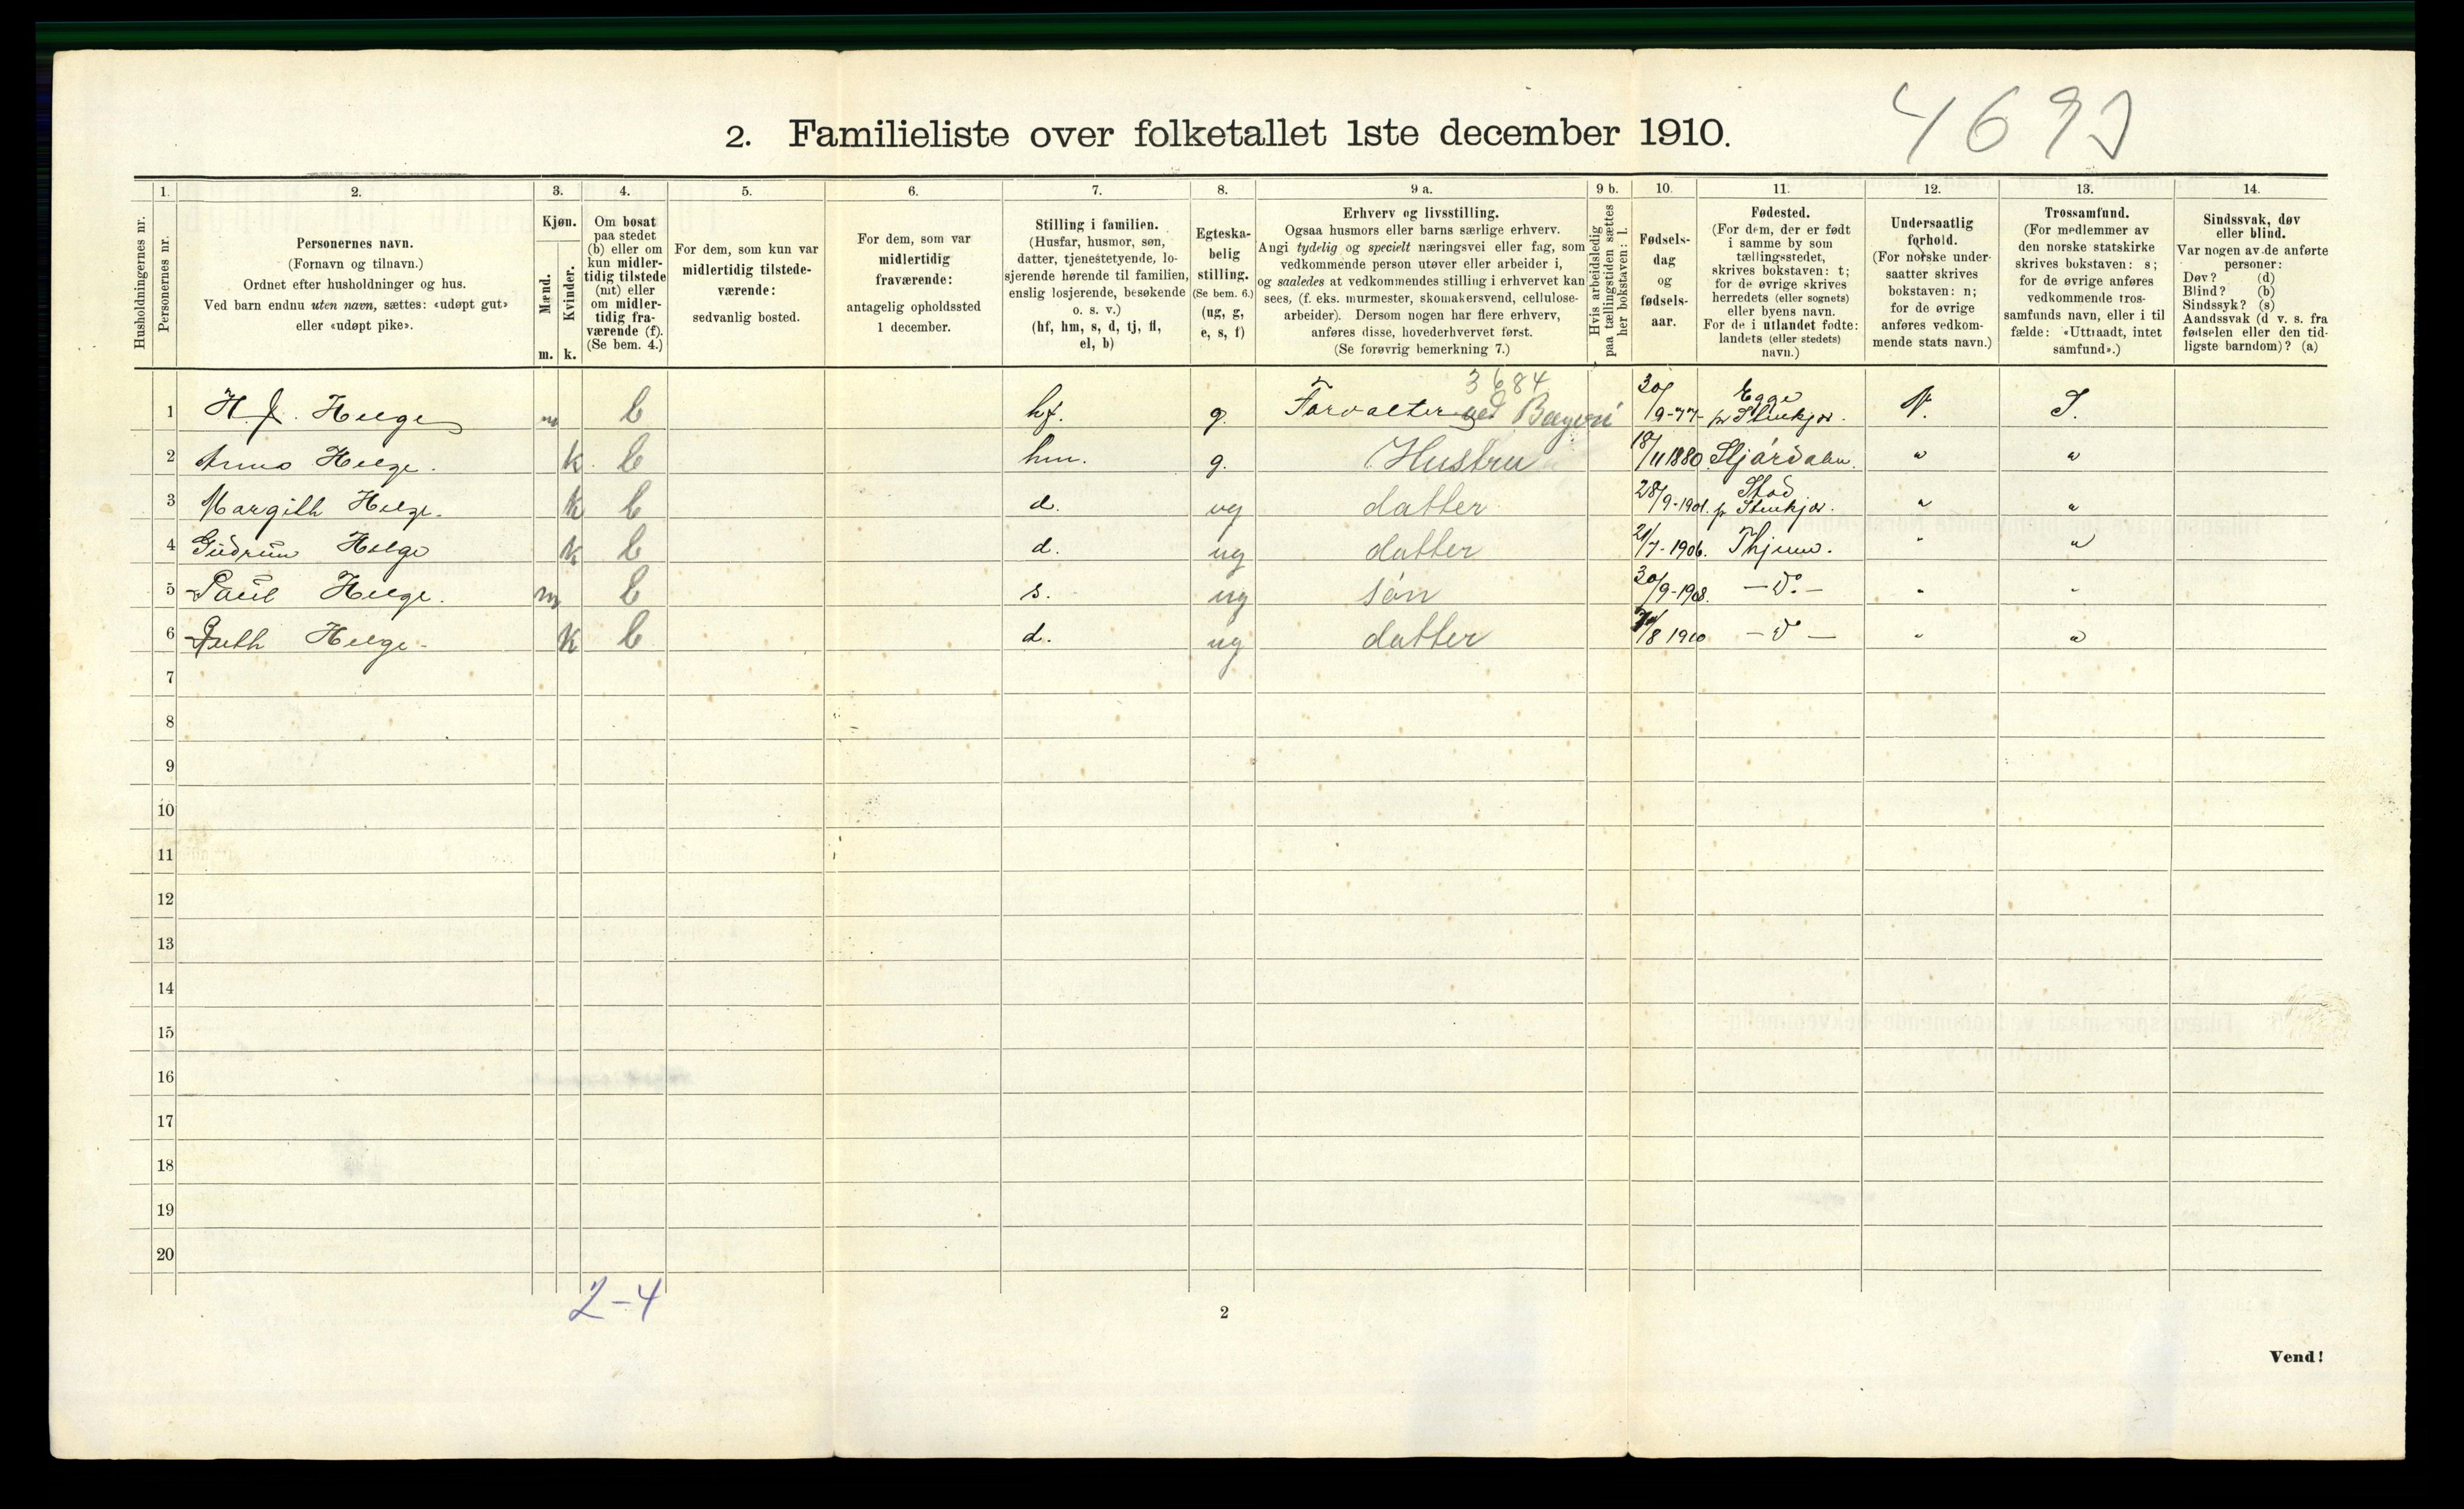 4692
2. Familieliste over folketallet 1ste december 1910.
Husholdningernes nr.
1. Personernes nr.
2. Personernes navn. (Fornavn og tilnavn.) Ordnet efter husholdninger og hus. Ved barn endnu uten navn, sættes: «udøpt gut» eller «udøpt pike».
3. Kjøn. Mænd. m. Kvinder. k.
4. Om bosat paa stedet (b) eller om kun midler- tidig tilstede (mt) eller om midler- tidig fra- værende (f). (Se bem. 4.)
5. For dem, som kun var midlertidig tilstede- værende: sedvanlig bosted.
6. For dem, som var midlertidig fraværende: antagelig opholdssted 1 december.
7. Stilling i familien. (Husfar, husmor, søn, datter, tjenestetyende, lo- sjerende hørende til familien, enslig losjerende, besøkende o. s. v.) (hf, hm, s, d, tj, fl, el, b)
8. Egteska- belig stilling. (Se bem. 6.) (ug, g, e, s, f)
9 a. Erhverv og livsstilling. Ogsaa husmors eller barns særlige erhverv. Angi tydelig og specielt næringsvei eller fag, som vedkommende person utøver eller arbeider i, og saaledes at vedkommendes stilling i erhvervet kan sees, (f. eks. murmester, skomakersvend, cellulose- arbeider). Dersom nogen har flere erhverv, anføres disse, hovederhvervet først. (Se forøvrig bemerkning 7.)
9 b. Hvis arbeidsledig paa tællingstiden sættes her bokstaven: l.
10. Fødsels- dag og fødsels- aar.
11. Fødested. (For dem, der er født i samme by som tællingsstedet, skrives bokstaven: t; for de øvrige skrives herredets (eller sognets) eller byens navn. For de i utlandet fødte: landets (eller stedets) navn.)
12. Undersaatlig forhold. (For norske under- saatter skrives bokstaven: n; for de øvrige anføres vedkom- mende stats navn.)
13. Trossamfund. (For medlemmer av den norske statskirke skrives bokstaven: s; for de øvrige anføres vedkommende tros- samfunds navn, eller i til fælde: «Uttraadt, intet samfund».)
14. Sindssvak, døv eller blind. Var nogen av de anførte personer: Døv? (d) Blind? (b) Sindssyk? (s) Aandssvak (d v. s. fra fødselen eller den tid- ligste barndom)? (a)
3684
1 H. J. Helge m b hf. g. Forvalter ved Bayeri 30/9-77 Egge pr Stenkjær. N. S.
2 Anna Helge. k. b hm. g. Hustru 18/11 1880 Stjørdalen. " "
3 Margith Helge. k b d. ug datter 28/9-1901. Stod pr Stenkjær. " "
4 Gudrun Helge k b d. ug datter 21/7-1906. Thjem. " "
5 Paul Helge. m b s. ug søn 30/9-1908. — do — " "
6 Ruth Helge - k b d. ug datter /8 1910 — do — " "
7
8
9
10
11
12
13
14
15
16
17
18
19
20
2-4
2
Vend!